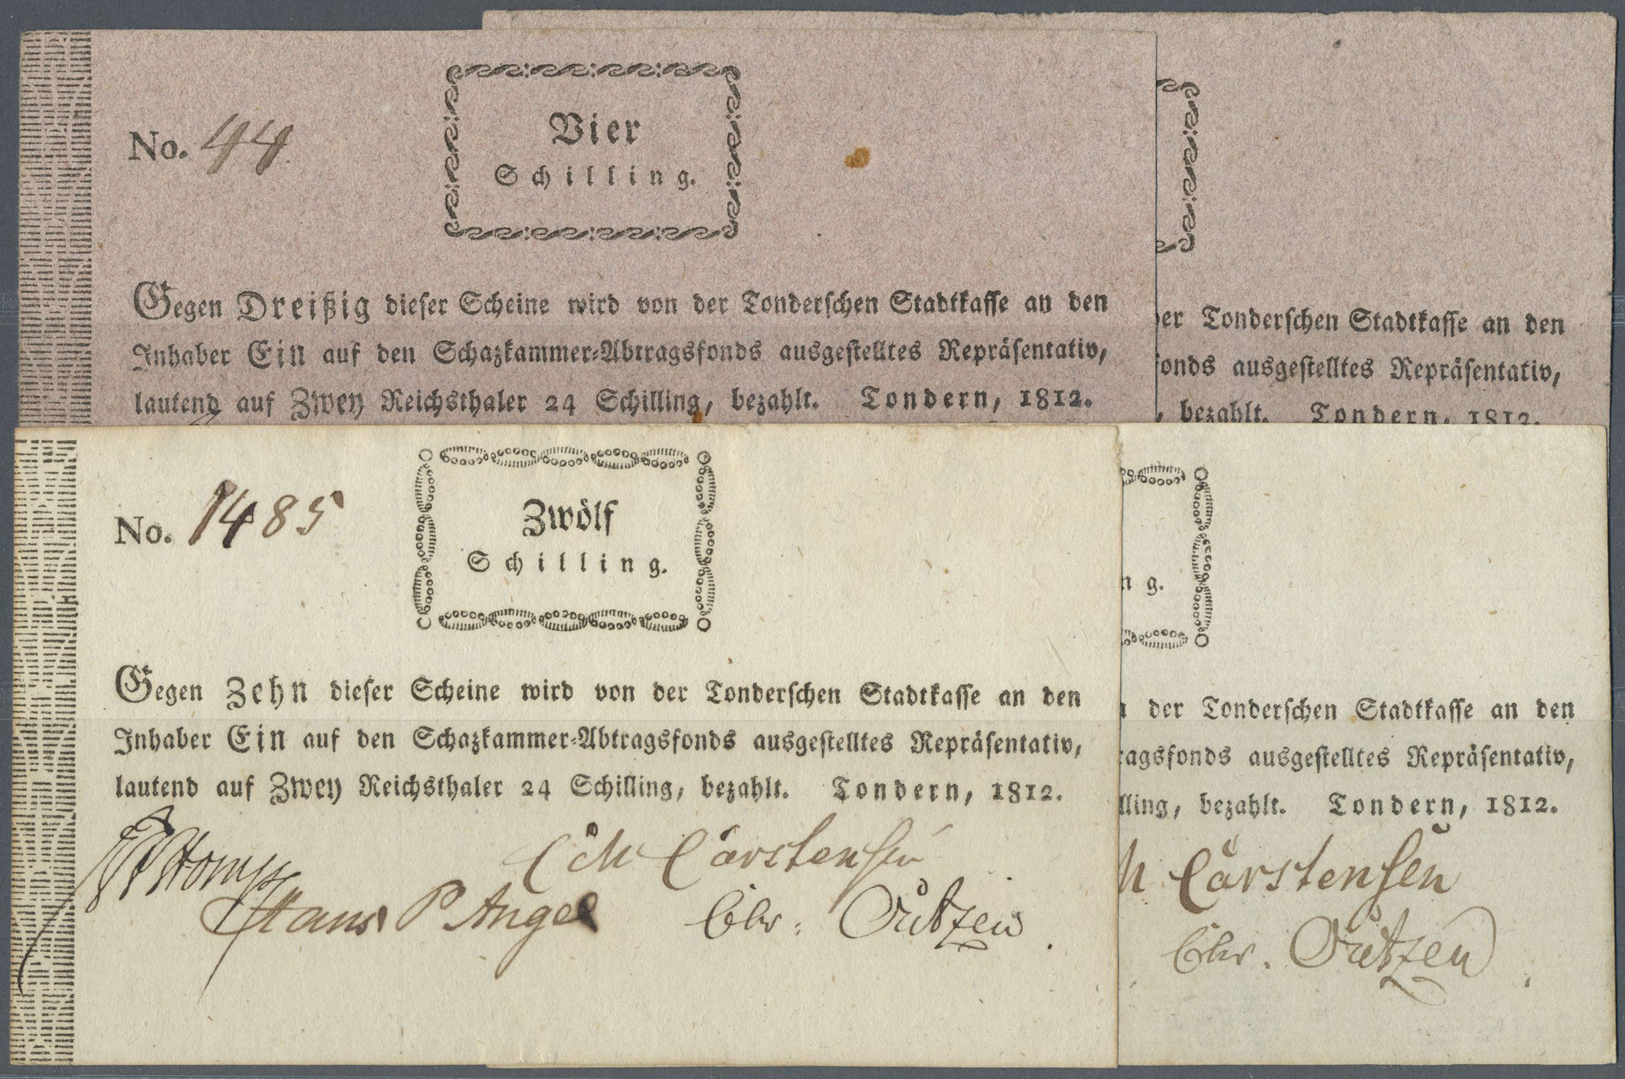 No. 44
Vier
Schilling.
Gegen Dreißig dieser Scheine wird von der Tonderschen Stadtkasse an den
Inhaber Ein auf den Schazkammer-Abtragsfonds ausgestelltes Repräsentativ,
lautend auf Zwey Reichsthaler 24 Schilling, bezahlt. Tondern, 1812.
der Tonderschen Stadtkasse an den
fonds ausgestelltes Repräsentativ,
, bezahlt. Tondern, 1812.
No. 1485
Zwölf
Schilling.
Gegen Zehn dieser Scheine wird von der Tonderschen Stadtkasse an den
Inhaber Ein auf den Schazkammer-Abtragsfonds ausgestelltes Repräsentativ,
lautend auf Zwey Reichsthaler 24 Schilling, bezahlt. Tondern, 1812.
Carstensen
Hans P Angel Chr. Outzen
ng.
der Tonderschen Stadtkasse an den
ragsfonds ausgestelltes Repräsentativ,
lling, bezahlt. Tondern, 1812.
Carstensen
Chr. Outzen